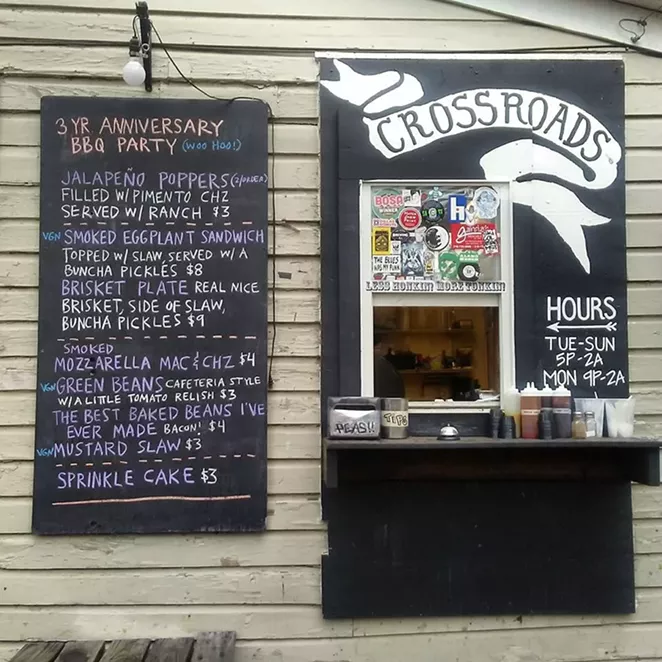 3 YR ANNIVERSARY
BBQ PARTY (WOO HOO!)
JALAPEÑO POPPERS (2/ORDER)
FILLED W/ PIMENTO CHZ
SERVED W/ RANCH $3
VGN SMOKED EGGPLANT SANDWICH
TOPPED W/ SLAW, SERVED W/ A
BUNCHA PICKLES $8
BRISKET PLATE REAL NICE
BRISKET, SIDE OF SLAW,
BUNCHA PICKLES $9
SMOKED
MOZZARELLA MAC & CHZ $4
VGN GREEN BEANS CAFETERIA STYLE
W/ A LITTLE TOMATO RELISH $3
THE BEST BAKED BEANS I'VE
EVER MADE BACON! $4
VGN MUSTARD SLAW $3
SPRINKLE CAKE $3
CROSSROADS
BOSA
WINNER
h
THE BLUES
WAS MY PUNK
LESS HONKIN' MORE TONKIN'
HOURS
TUE-SUN
5P-2A
MON 9P-2A
TIPS